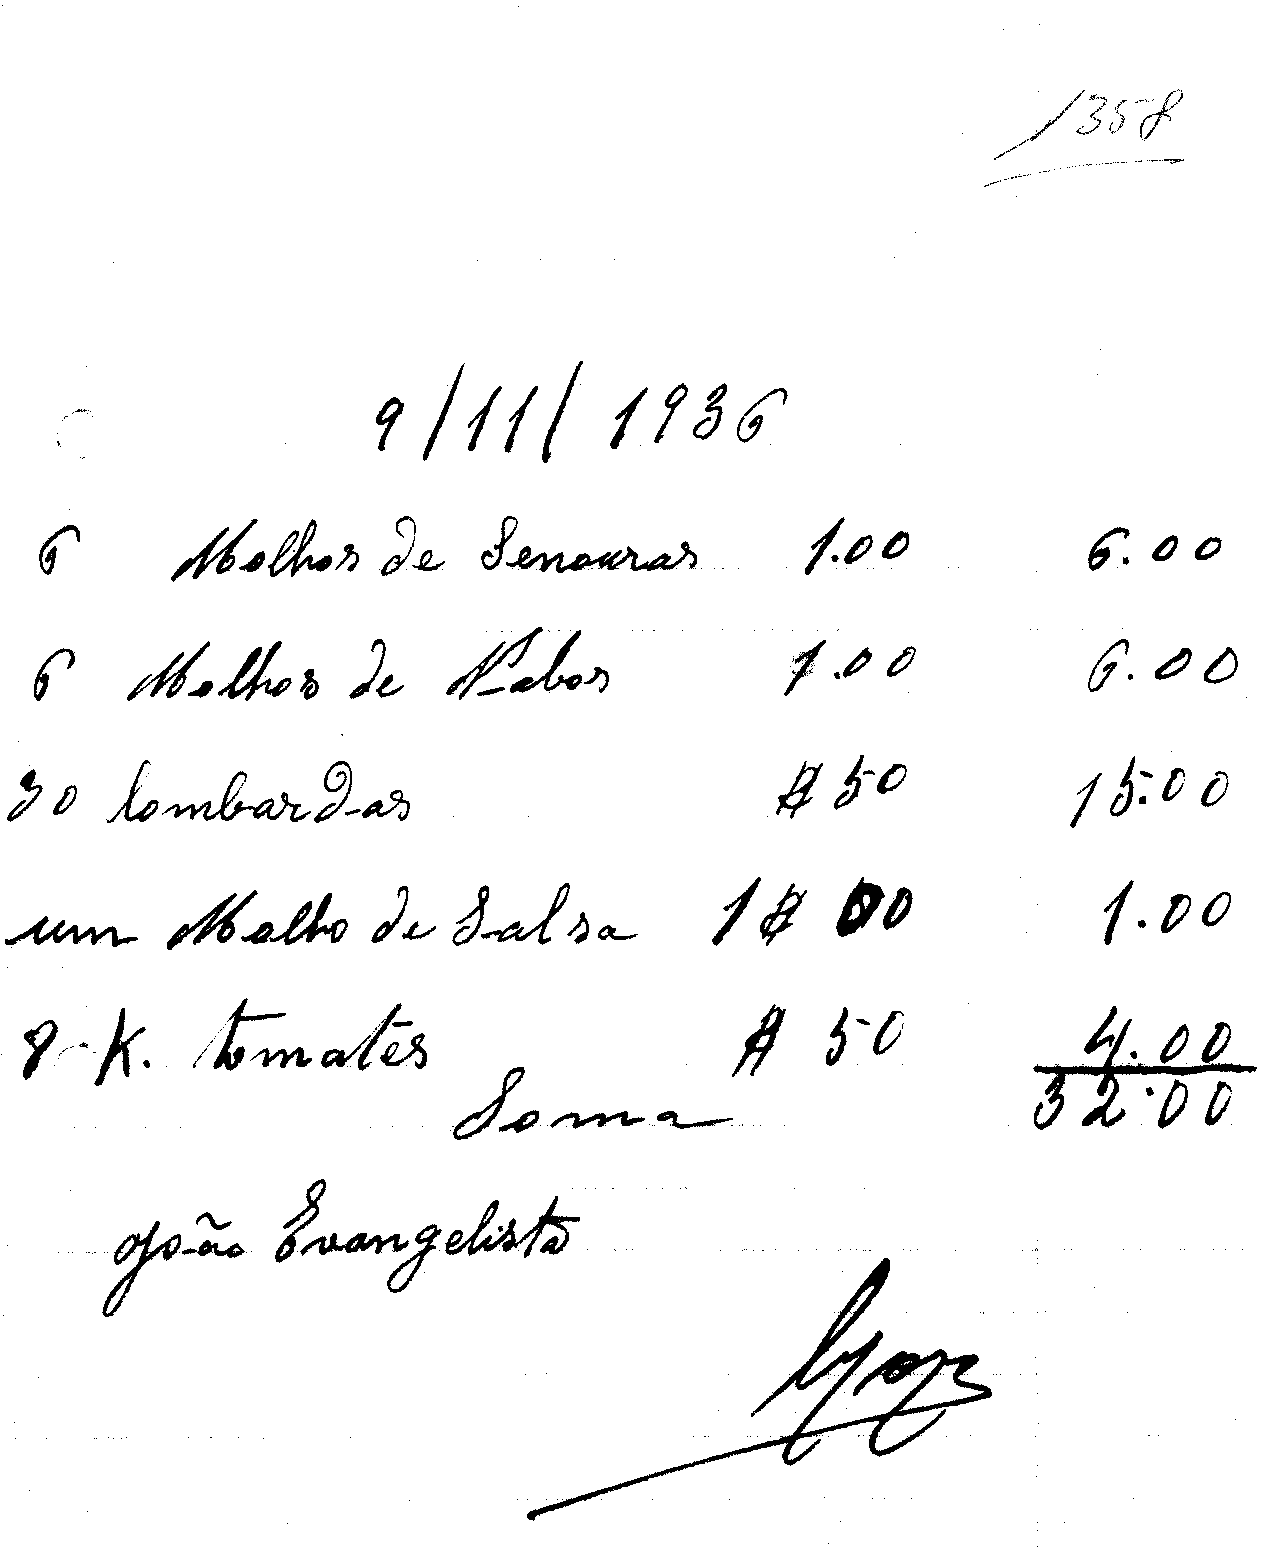 1358
9/11/1936
6 Molhos de Senouras 1.00 6.00
6 Molhos de Nabos 1.00 6.00
30 lombardas $50 15.00
um Molho de Salsa 1$00 1.00
8 K. tomates $50 4.00
Soma 32.00
João Evangelista